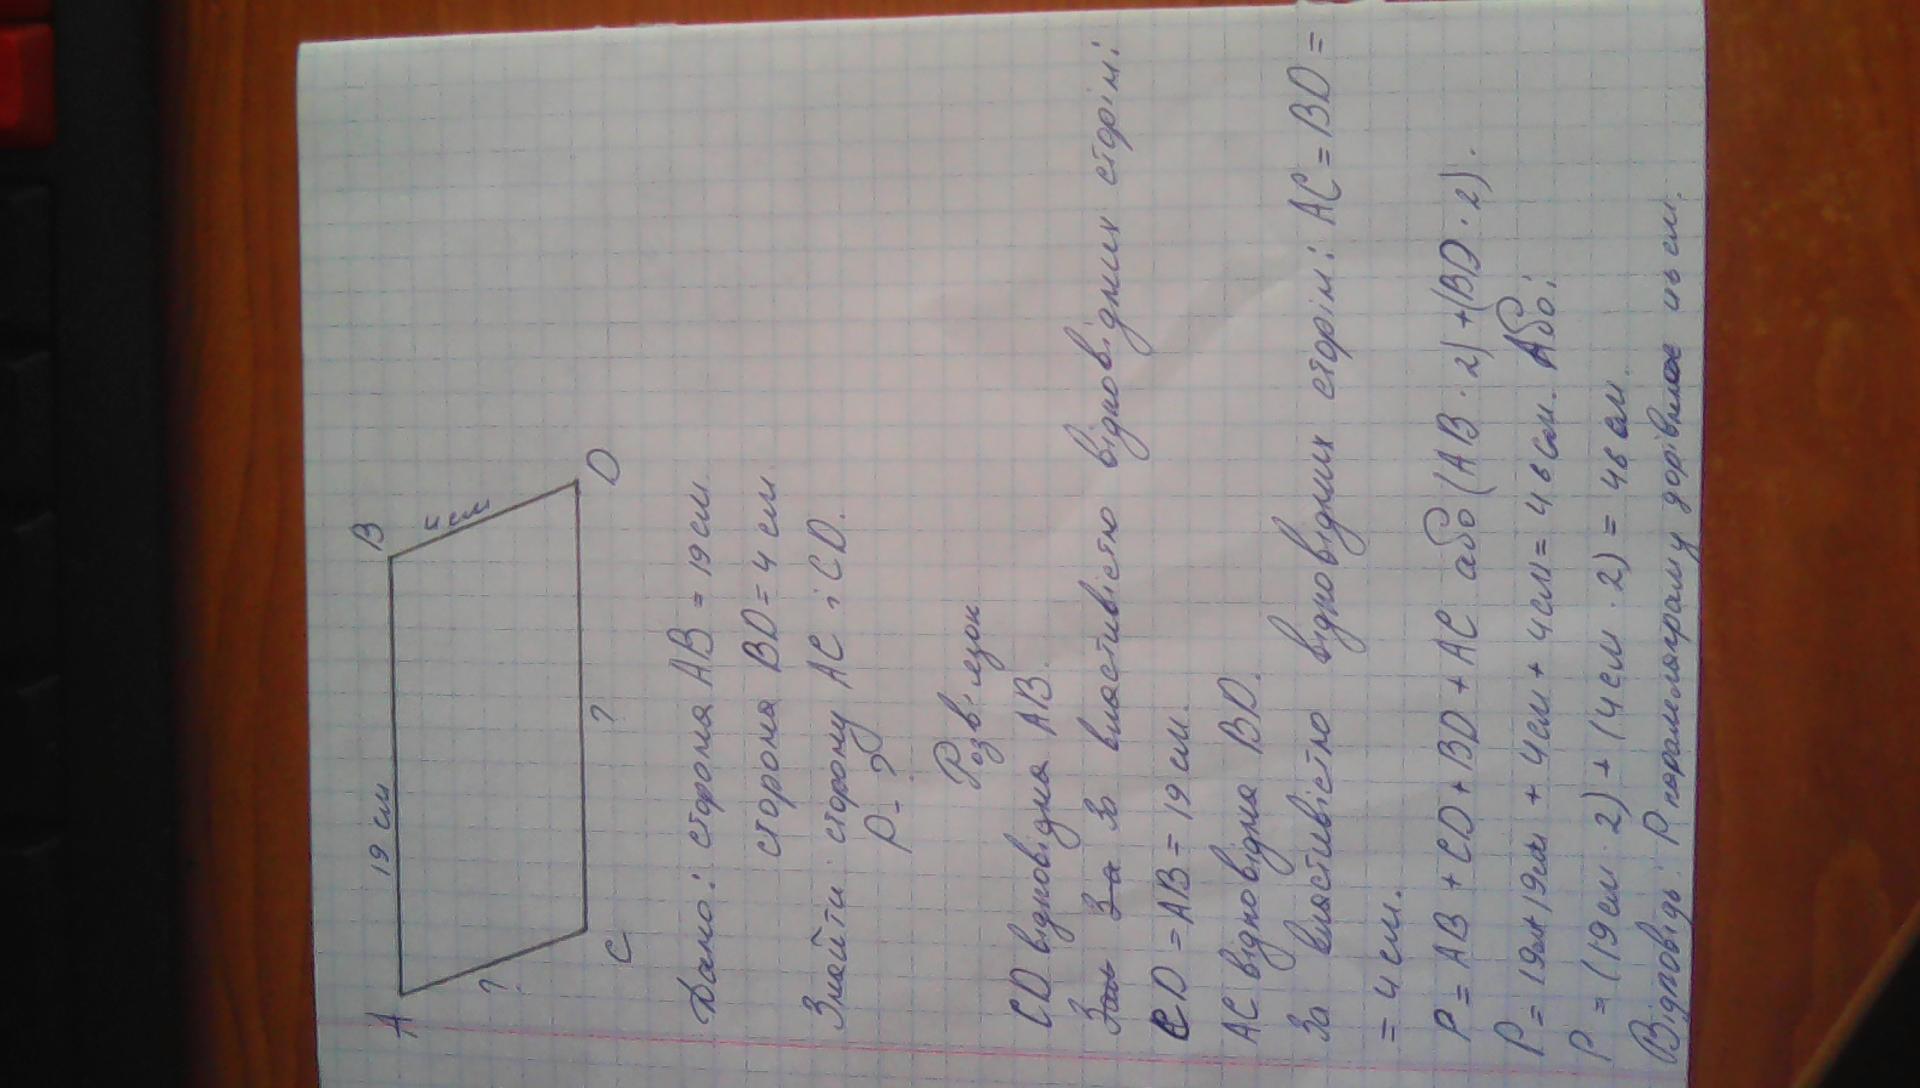 19 см
A
B
4 см
?
?
C
D
Дано: сторона AB = 19 см
сторона BD = 4 см
Знайти: сторону AC і CD.
P - ?
Розв'язок
CD відповідна AB.
За властивістю відповідних сторін:
CD = AB = 19 см.
AC відповідна BD.
За властивістю відповідних сторін: AC = BD =
= 4 см.
P = AB + CD + BD + AC або (AB · 2) + (BD · 2).
P = 19см + 19см + 4см + 4см = 46 см. Або:
P = (19 см · 2) + (4 см · 2) = 46 см.
Відповідь: P паралелограму дорівнює 46 см.